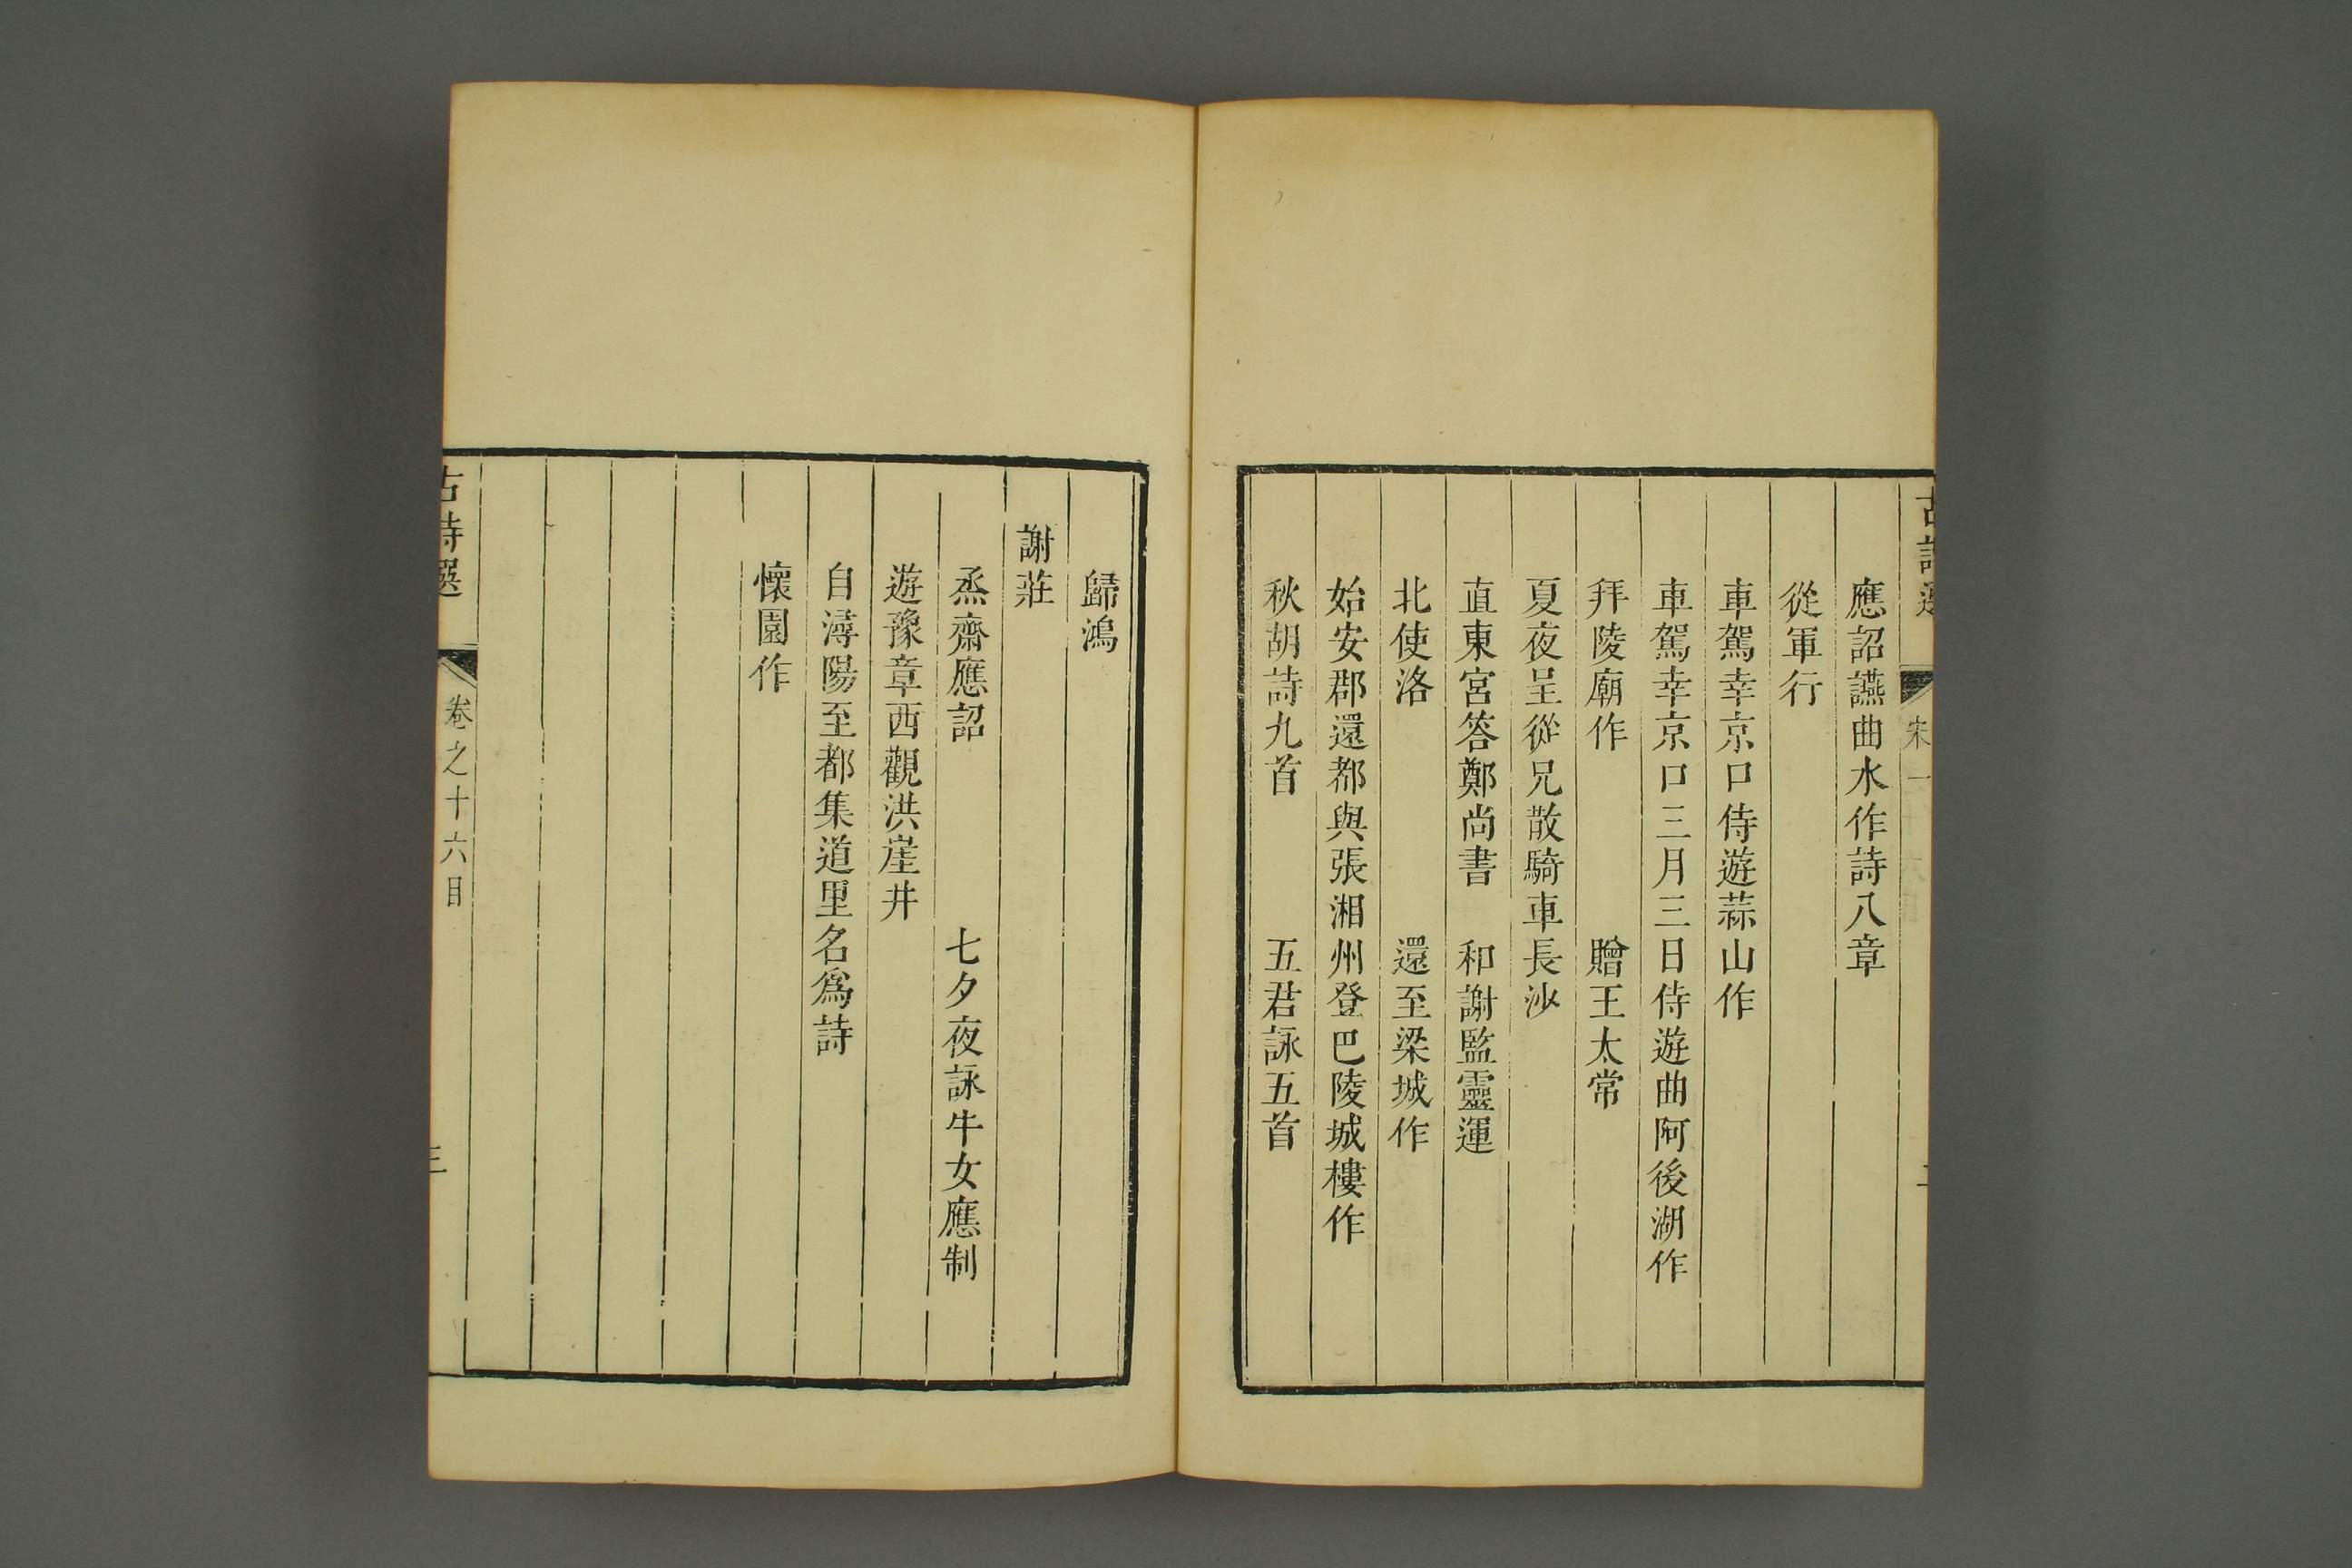 應詔讌曲水作詩八章
從軍行
車駕幸京口侍遊蒜山作
車駕幸京口三月三日侍遊曲阿後湖作
拜陵廟作　贈王太常
夏夜呈從兄散騎車長沙
直東宮答鄭尚書　和謝監靈運
北使洛　還至梁城作
始安郡還都與張湘州登巴陵城樓作
秋胡詩九首　五君詠五首
歸鴻
謝莊
烝齋應詔　七夕夜詠牛女應制
遊豫章西觀洪崖井
自潯陽至都集道里名爲詩
懷園作
古詩選　卷之十六目　三